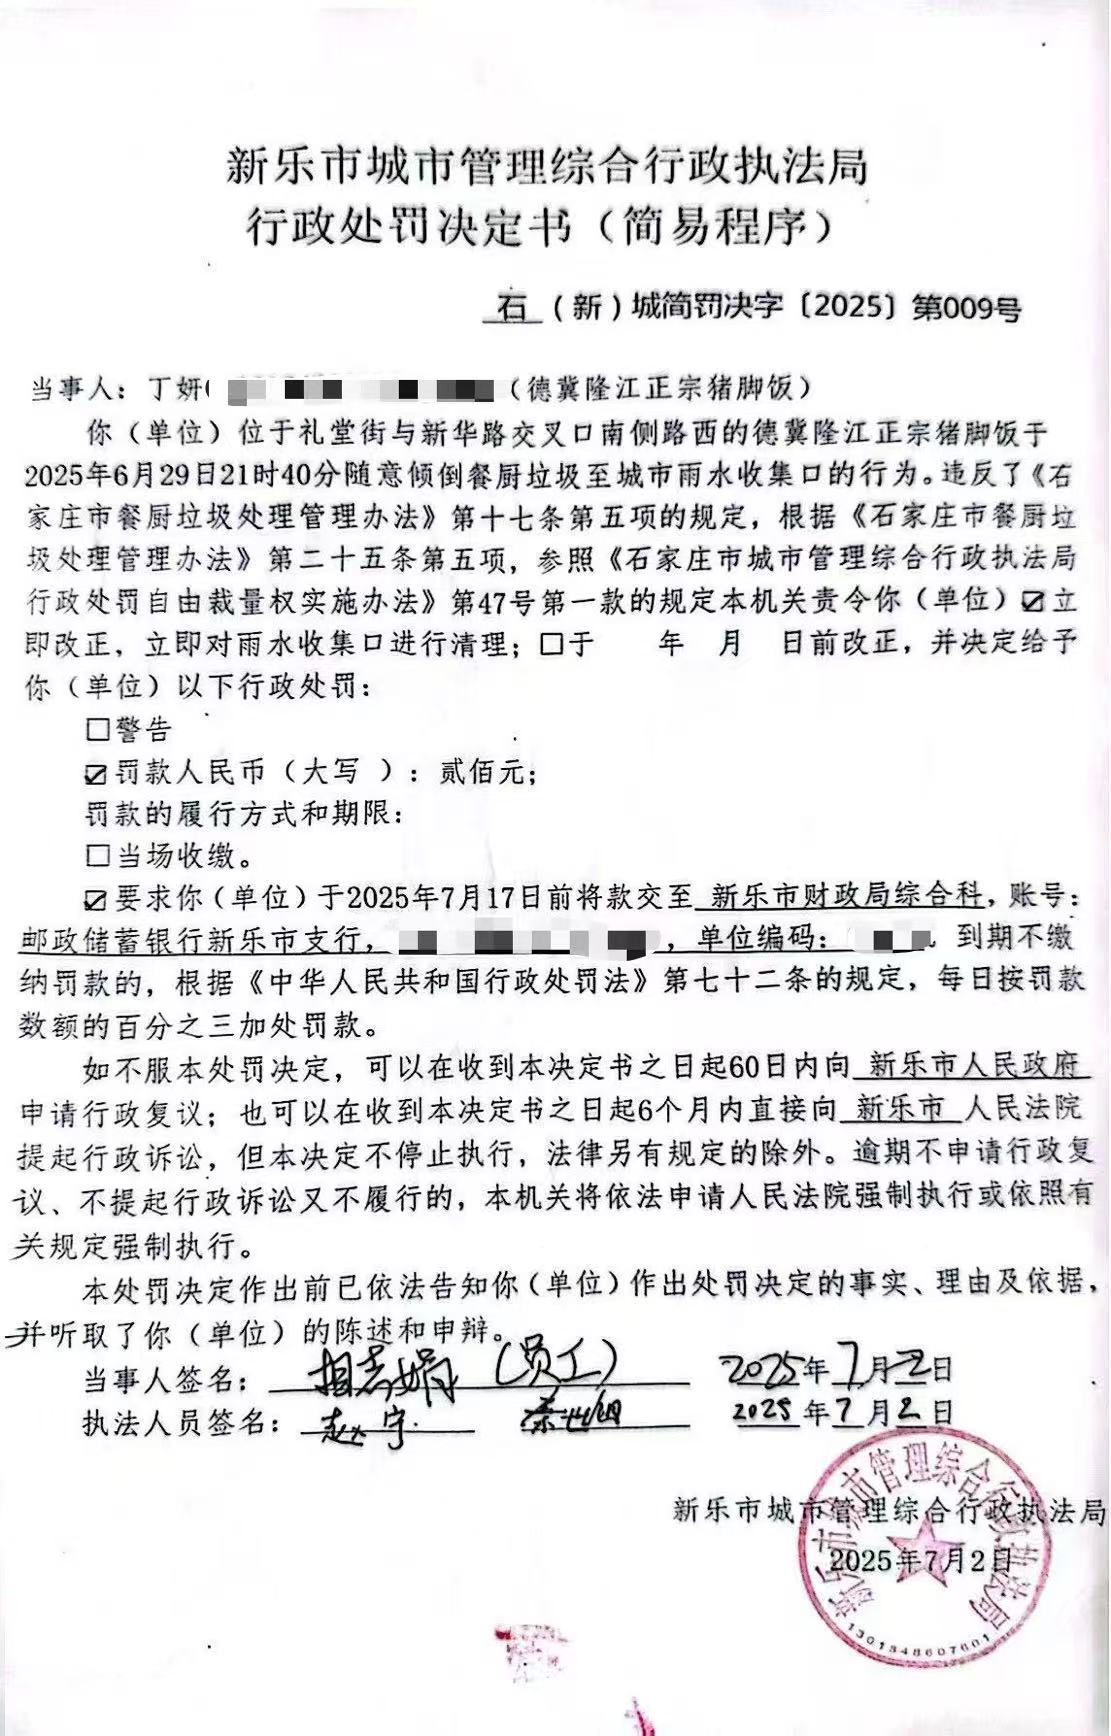 新乐市城市管理综合行政执法局
行政处罚决定书（简易程序）
石（新）城简罚决字〔2025〕第009号
当事人：丁妍（德冀隆江正宗猪脚饭）
你（单位）位于礼堂街与新华路交叉口南侧路西的德冀隆江正宗猪脚饭于
2025年6月29日21时40分随意倾倒餐厨垃圾至城市雨水收集口的行为。违反了《石
家庄市餐厨垃圾处理管理办法》第十七条第五项的规定，根据《石家庄市餐厨垃
圾处理管理办法》第二十五条第五项，参照《石家庄市城市管理综合行政执法局
行政处罚自由裁量权实施办法》第47号第一款的规定本机关责令你（单位）☑立
即改正，立即对雨水收集口进行清理；☐于 年 月 日前改正，并决定给予
你（单位）以下行政处罚：
☐警告
☑罚款人民币（大写 ）：贰佰元；
罚款的履行方式和期限：
☐当场收缴。
☑要求你（单位）于2025年7月17日前将款交至 新乐市财政局综合科，账号：
邮政储蓄银行新乐市支行，，单位编码： 到期不缴
纳罚款的，根据《中华人民共和国行政处罚法》第七十二条的规定，每日按罚款
数额的百分之三加处罚款。
如不服本处罚决定，可以在收到本决定书之日起60日内向 新乐市人民政府
申请行政复议；也可以在收到本决定书之日起6个月内直接向 新乐市 人民法院
提起行政诉讼，但本决定不停止执行，法律另有规定的除外。逾期不申请行政复
议、不提起行政诉讼又不履行的，本机关将依法申请人民法院强制执行或依照有
关规定强制执行。
本处罚决定作出前已依法告知你（单位）作出处罚决定的事实、理由及依据，
并听取了你（单位）的陈述和申辩。
当事人签名：（员工） 2025年7月2日
执法人员签名：赵宇 2025年7月2日
新乐市城市管理综合行政执法局
2025年7月2日
新乐市城市管理综合行政执法局
1301848607601